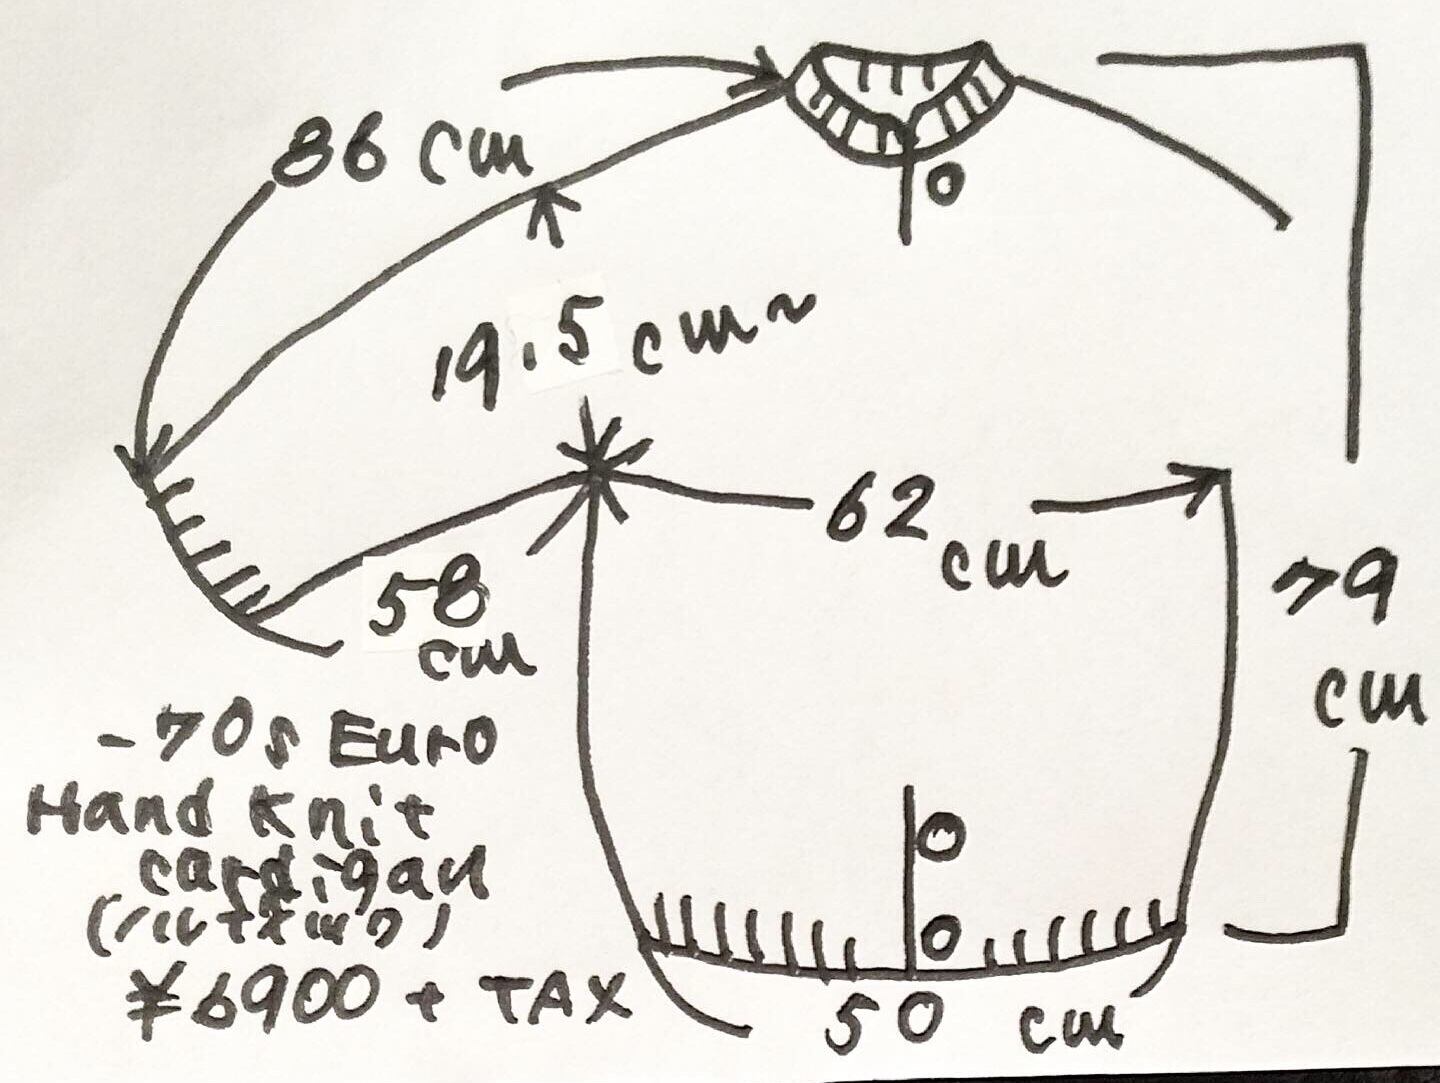 86 cm
19.5 cm~
62 cm
58 cm
79 cm
-70s Euro
Hand Knit
cardigan
¥6900 + TAX
50 cm